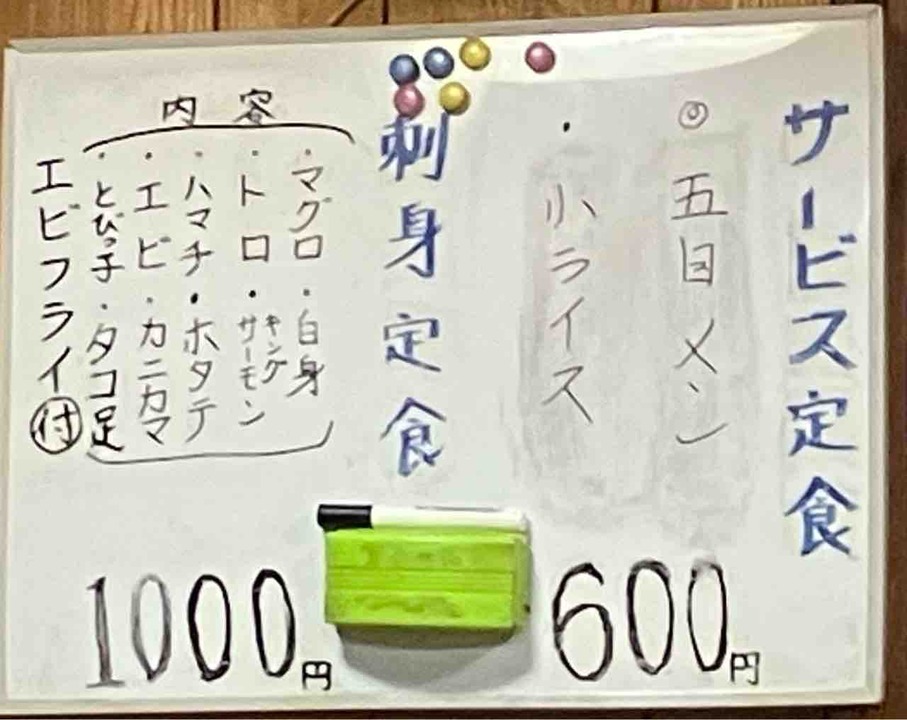 サービス定食
◎五目メン
・小ライス
600円
刺身定食
内容
・マグロ・白身
・トロ・キングサーモン
・ハマチ・ホタテ
・エビ・カニカマ
・とびっ子・タコ足
エビフライ付
1000円